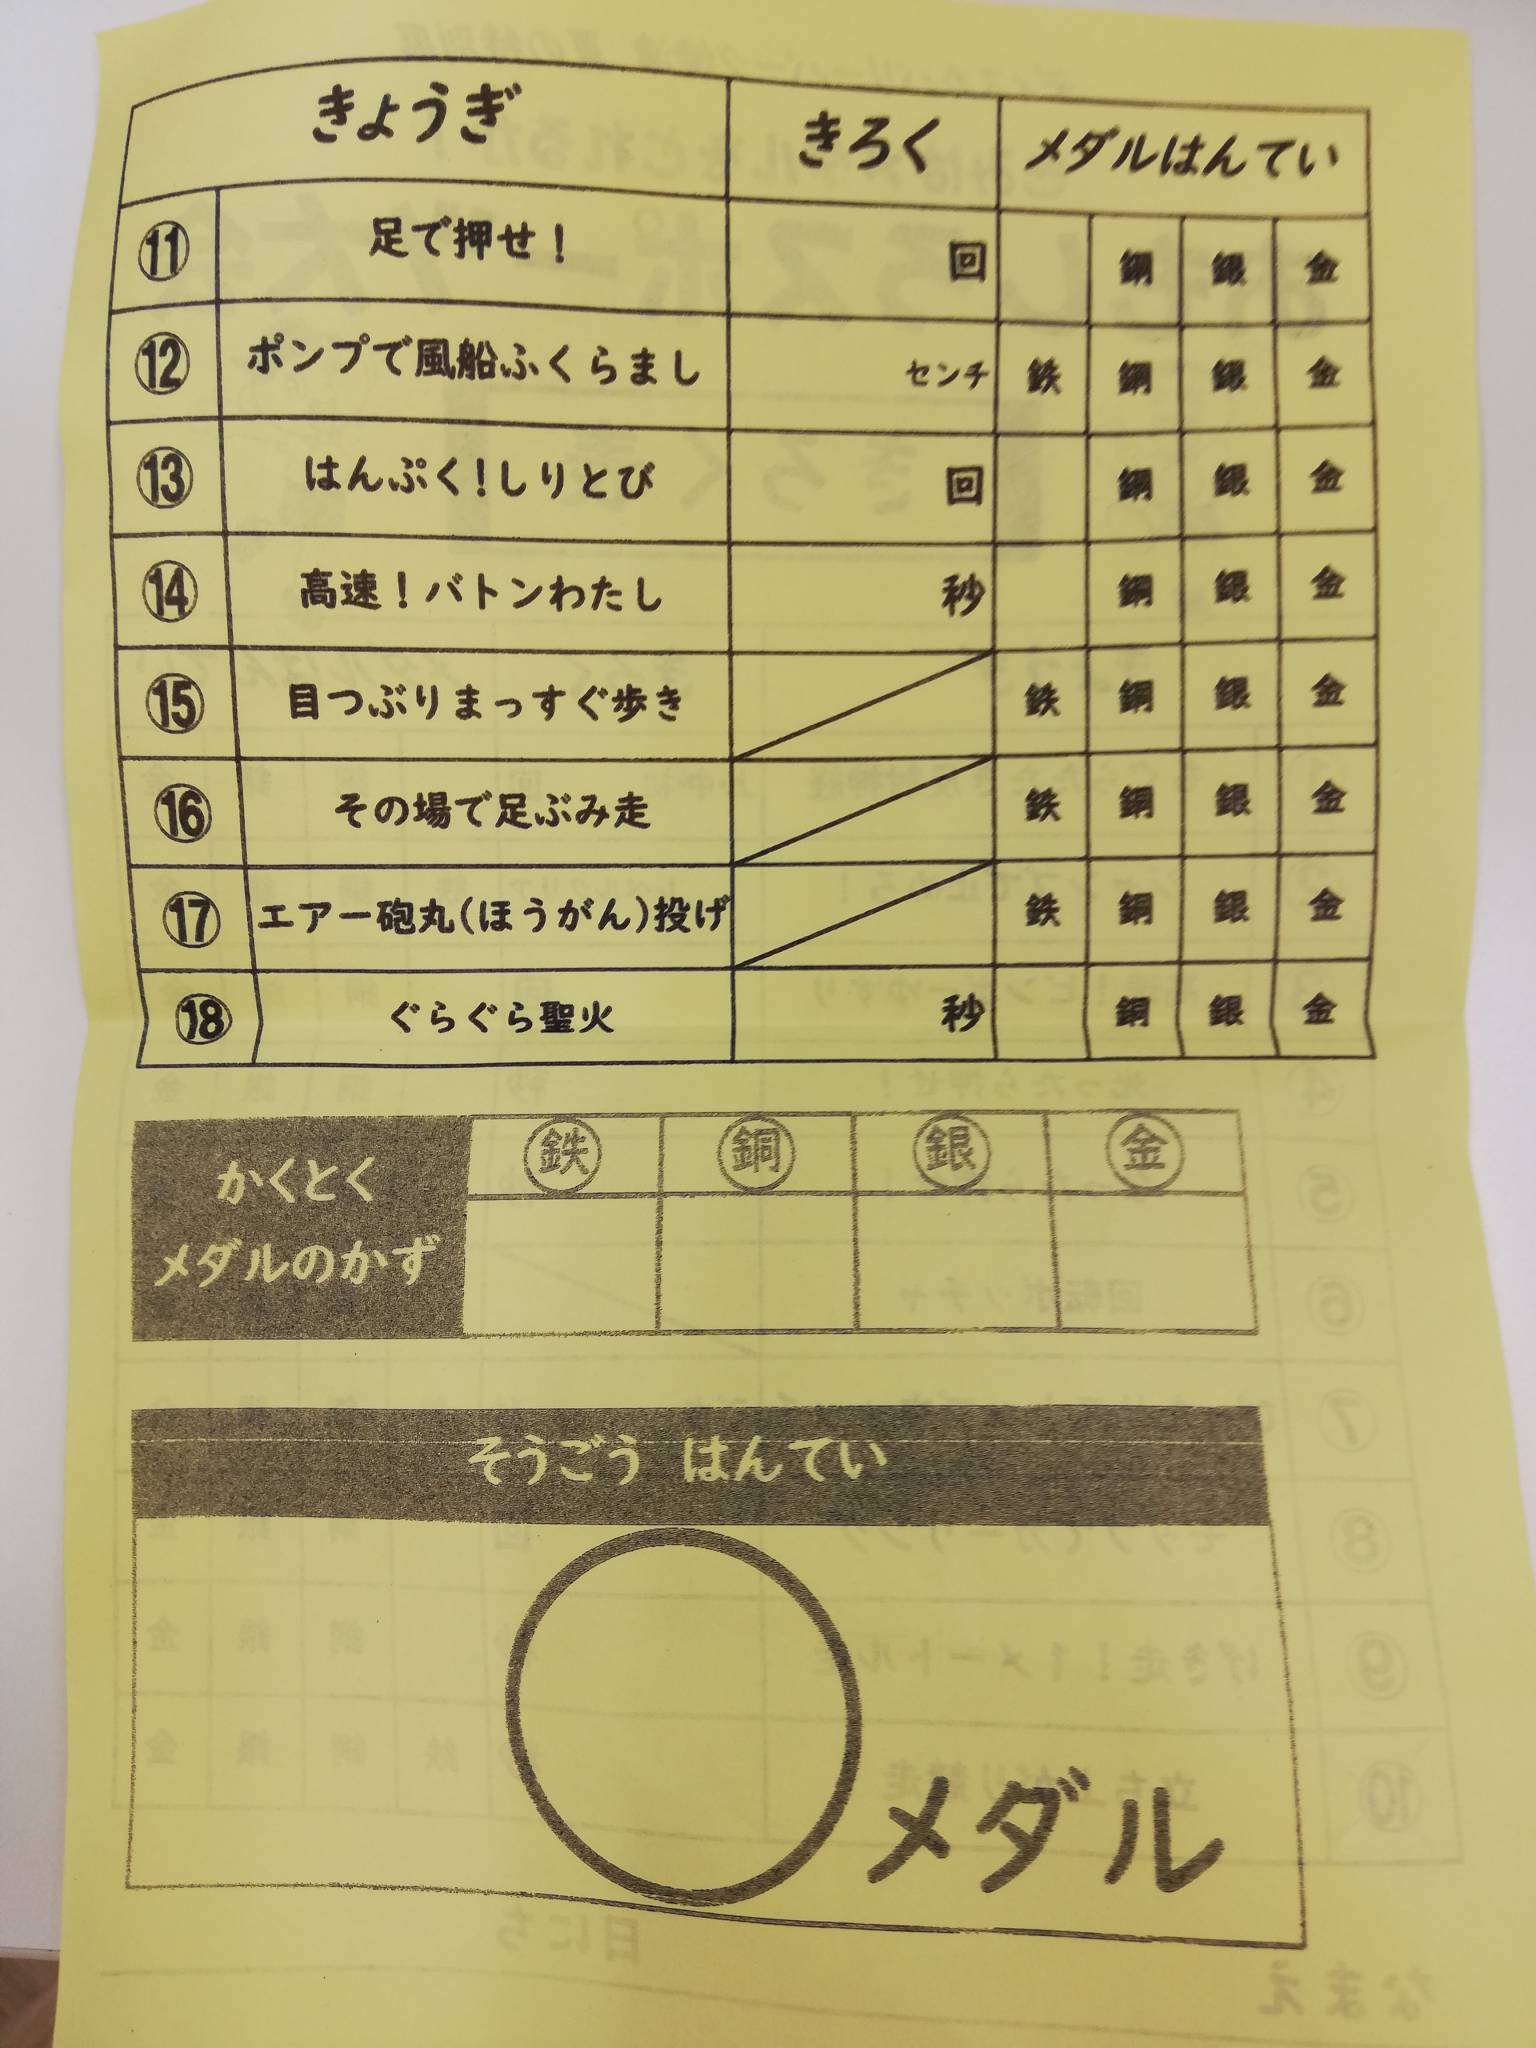 きょうぎ きろく メダルはんてい
⑪ 足で押せ! 回 銅 銀 金
⑫ ポンプで風船ふくらまし センチ 鉄 銅 銀 金
⑬ はんぷく!しりとび 回 銅 銀 金
⑭ 高速!バトンわたし 秒 銅 銀 金
⑮ 目つぶりまっすぐ歩き 鉄 銅 銀 金
⑯ その場で足ぶみ走 鉄 銅 銀 金
⑰ エアー砲丸(ほうがん)投げ 鉄 銅 銀 金
⑱ ぐらぐら聖火 秒 銅 銀 金
かくとく
メダルのかず
鉄 銅 銀 金
そうごう はんてい
メダル